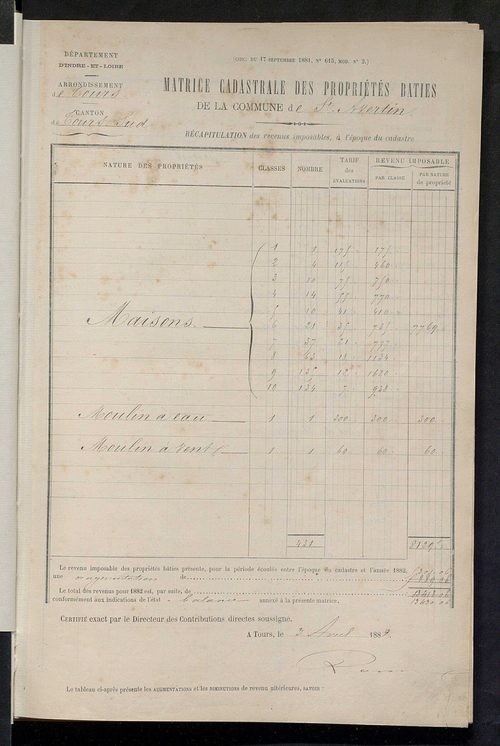 DÉPARTEMENT
D'INDRE-ET-LOIRE
ARRONDISSEMENT
de Tours
CANTON
de Tours Sud
(CIRC. DU 17 SEPTEMBRE 1881, N° 615, MOD. N° 3.)
MATRICE CADASTRALE DES PROPRIÉTÉS BATIES
DE LA COMMUNE de St Avertin
RÉCAPITULATION des revenus imposables, à l'époque du cadastre
NATURE DES PROPRIÉTÉS CLASSES NOMBRE TARIF des ÉVALUATIONS REVENU IMPOSABLE
PAR CLASSE PAR NATURE de propriété
1 1 175 175
2 4 115 460
3 10 75 750
4 14 55 770
5 10 41 410
Maisons 6 21 35 735 7769
7 37 21 777
8 63 18 1134
9 135 12 1620
10 134 7 938
Moulin à eau 1 1 300 300 300
Moulin à vent 1 1 60 60 60
431
Le revenu imposable des propriétés bâties présente, pour la période écoulée entre l'époque du cadastre et l'année 1882,
une augmentation de
Le total des revenus pour 1882 est, par suite, de
conformément aux indications de l'état annexé à la présente matrice.
CERTIFIÉ exact par le Directeur des Contributions directes soussigné.
A TOURS, le 3 Avril 1882
Le tableau ci-après présente les AUGMENTATIONS et les DIMINUTIONS de revenu ultérieures, SAVOIR :